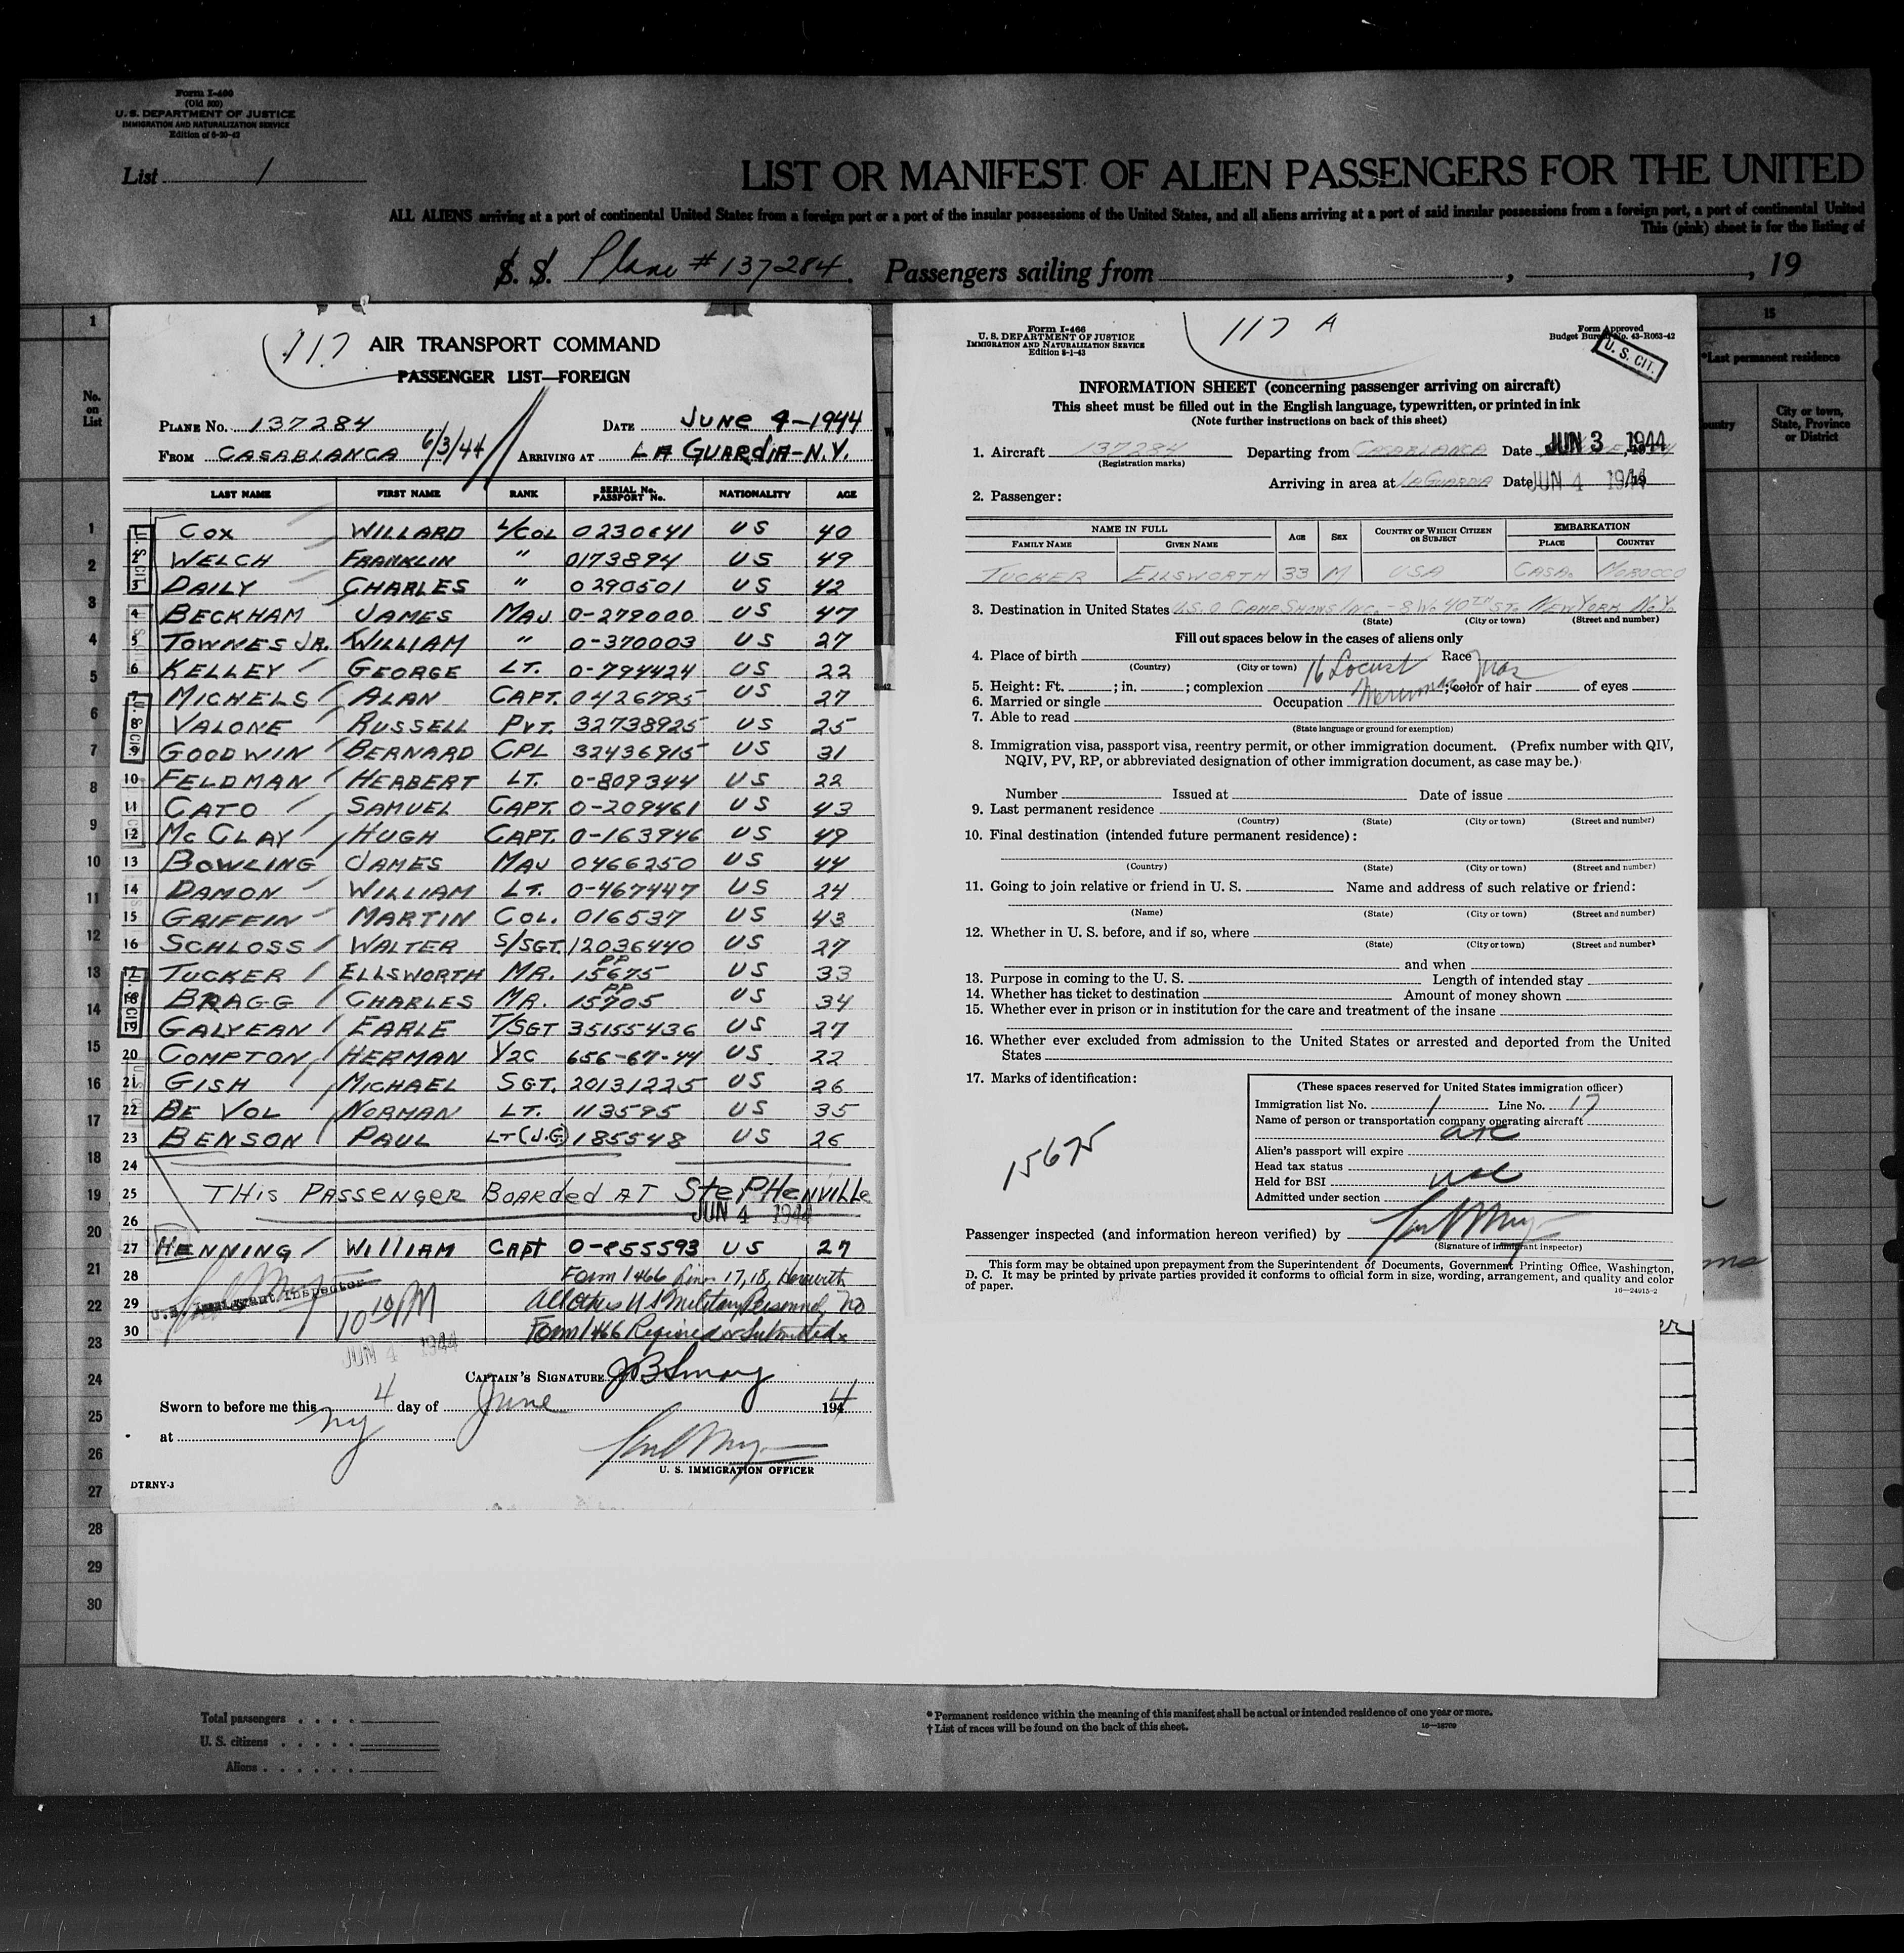 Form I-466
(Old 500)
U. S. DEPARTMENT OF JUSTICE
IMMIGRATION AND NATURALIZATION SERVICE
List 1
LIST OR MANIFEST OF ALIEN PASSENGERS FOR THE UNITED
ALL ALIENS arriving at a port of continental United States from a foreign port or a port of the insular possessions of the United States, and all aliens arriving at a port of said insular possessions from a foreign port, a port of continental United
This (pink) sheet is for the listing of
S. S. Plane # 137284. Passengers sailing from , , 19
No. on List
117
AIR TRANSPORT COMMAND
PASSENGER LIST—FOREIGN
PLANE No. 137284 DATE JUNE 4-1944
FROM CASABLANCA 6/3/44 ARRIVING AT LA GUARDIA-N.Y.
LAST NAME FIRST NAME RANK SERIAL No. PASSPORT No. NATIONALITY AGE
1 COX WILLARD L/COL 0230641 US 40
2 WELCH FRANKLIN " 0173894 US 49
3 DAILY CHARLES " 0290501 US 42
4 BECKHAM JAMES MAJ 0-279000 US 47
5 TOWNES JR. WILLIAM " 0-370003 US 27
6 KELLEY GEORGE LT. 0-794424 US 22
7 MICHELS ALAN CAPT. 0426795 US 27
8 VALONE RUSSELL PVT. 32738925 US 25
9 GOODWIN BERNARD CPL 32436915 US 31
10 FELDMAN HERBERT LT. 0-809344 US 22
11 CATO SAMUEL CAPT. 0-209461 US 43
12 McCLAY HUGH CAPT. 0-163946 US 49
13 BOWLING JAMES MAJ 0466250 US 44
14 DAMON WILLIAM LT. 0-467447 US 24
15 GRIFFIN MARTIN COL. 016537 US 43
16 SCHLOSS WALTER S/SGT. 12036440 US 27
17 TUCKER ELLSWORTH MR. PP 15675 US 33
18 BRAGG CHARLES MR. PP 15705 US 34
19 GALYEAN EARLE T/SGT 35155436 US 27
20 COMPTON HERMAN Y2C 656-67-44 US 22
21 GISH MICHAEL SGT. 20131225 US 26
22 BE VOL NORMAN LT. 113595 US 35
23 BENSON PAUL LT (J.G) 185548 US 26
24
25 THIS PASSENGER BOARDED AT STEPHENVILLE
26 JUN 4 1944
27 HENNING WILLIAM CAPT 0-855593 US 27
28 Form I466 Lines 17, 18, Herewith
29 All others U S Military Personnel, no
30 Form I466 Required or Submitted
U.S. Immigrant Inspector
10 10 PM
JUN 4 1944
CAPTAIN'S SIGNATURE
Sworn to before me this 4 day of June 1944
at NY
U. S. IMMIGRATION OFFICER
DTRNY-J
Form I-466
U. S. DEPARTMENT OF JUSTICE
IMMIGRATION AND NATURALIZATION SERVICE
Edition 8-1-43
117 A
Form Approved
Budget Bureau No. 43-R063-42
U. S. CIT.
INFORMATION SHEET (concerning passenger arriving on aircraft)
This sheet must be filled out in the English language, typewritten, or printed in ink
(Note further instructions on back of this sheet)
1. Aircraft 137284 Departing from CASABLANCA Date JUN 3 1944
(Registration marks)
Arriving in area at LAGUARDIA Date JUN 4 1944
2. Passenger:
NAME IN FULL AGE SEX COUNTRY OF WHICH CITIZEN OR SUBJECT EMBARKATION
FAMILY NAME GIVEN NAME PLACE COUNTRY
TUCKER ELLSWORTH 33 M USA CASA. MOROCCO
3. Destination in United States U.S.O CAMP SHOWS INC. - 8 W. 40TH ST. NEW YORK N.Y.
(State) (City or town) (Street and number)
Fill out spaces below in the cases of aliens only
4. Place of birth Race
(Country) (City or town)
16 Locust
5. Height: Ft. ; in. ; complexion ; color of hair of eyes
6. Married or single Occupation
7. Able to read
(State language or ground for exemption)
8. Immigration visa, passport visa, reentry permit, or other immigration document. (Prefix number with QIV,
NQIV, PV, RP, or abbreviated designation of other immigration document, as case may be.)
Number Issued at Date of issue
9. Last permanent residence
(Country) (State) (City or town) (Street and number)
10. Final destination (intended future permanent residence):
(Country) (State) (City or town) (Street and number)
11. Going to join relative or friend in U. S. Name and address of such relative or friend:
(Name) (State) (City or town) (Street and number)
12. Whether in U. S. before, and if so, where
(State) (City or town) (Street and number)
and when
13. Purpose in coming to the U. S. Length of intended stay
14. Whether has ticket to destination Amount of money shown
15. Whether ever in prison or in institution for the care and treatment of the insane
16. Whether ever excluded from admission to the United States or arrested and deported from the United
States
17. Marks of identification:
15675
(These spaces reserved for United States immigration officer)
Immigration list No. 1 Line No. 17
Name of person or transportation company operating aircraft
ATC
Alien's passport will expire
Head tax status
Held for BSI
Admitted under section
Passenger inspected (and information hereon verified) by
(Signature of immigrant inspector)
This form may be obtained upon prepayment from the Superintendent of Documents, Government Printing Office, Washington,
D. C. It may be printed by private parties provided it conforms to official form in size, wording, arrangement, and quality and color
of paper.
16—24915-2
15
*Last permanent residence
City or town, State, Province or District
Total passengers
U. S. citizens
Aliens
* Permanent residence within the meaning of this manifest shall be actual or intended residence of one year or more.
† List of races will be found on the back of this sheet.